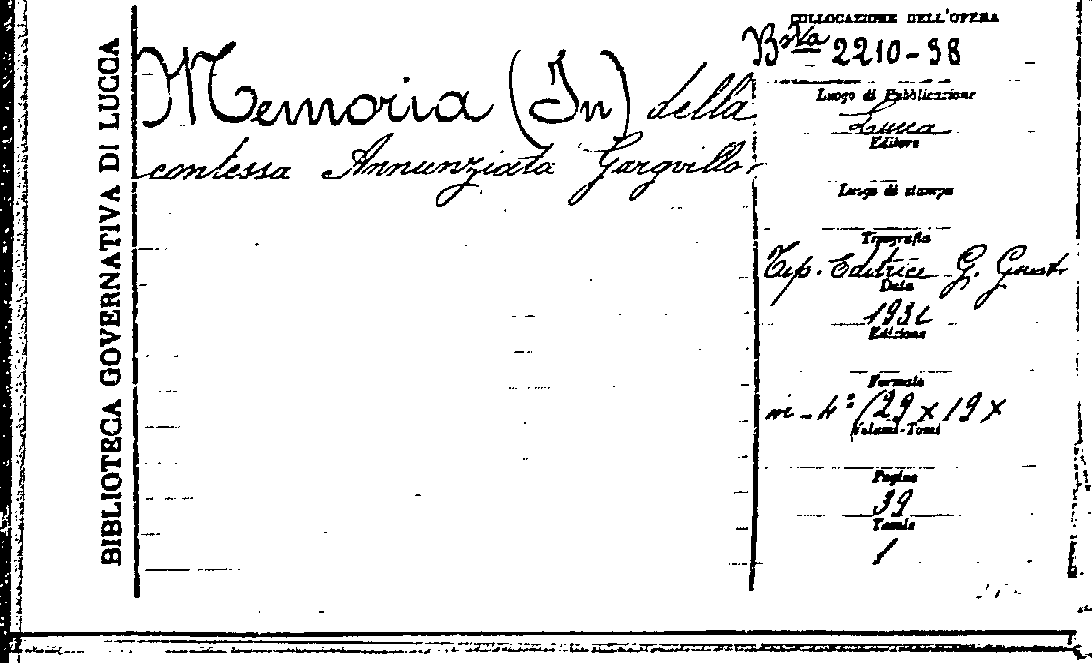 BIBLIOTECA GOVERNATIVA DI LUCCA
Memoria (In) della
contessa Annunziata Gargiollo
COLLOCAZIONE DELL'OPERA
Bta 2210-98
Luogo di Pubblicazione
Lucca
Editore
Luogo di stampa
Tipografia
Tip. Editrice G. Giusti
Data
Edizione
Formato
in-4º (29 x 19 x
Volumi-Tomi
Pagine
39
Tavole
1